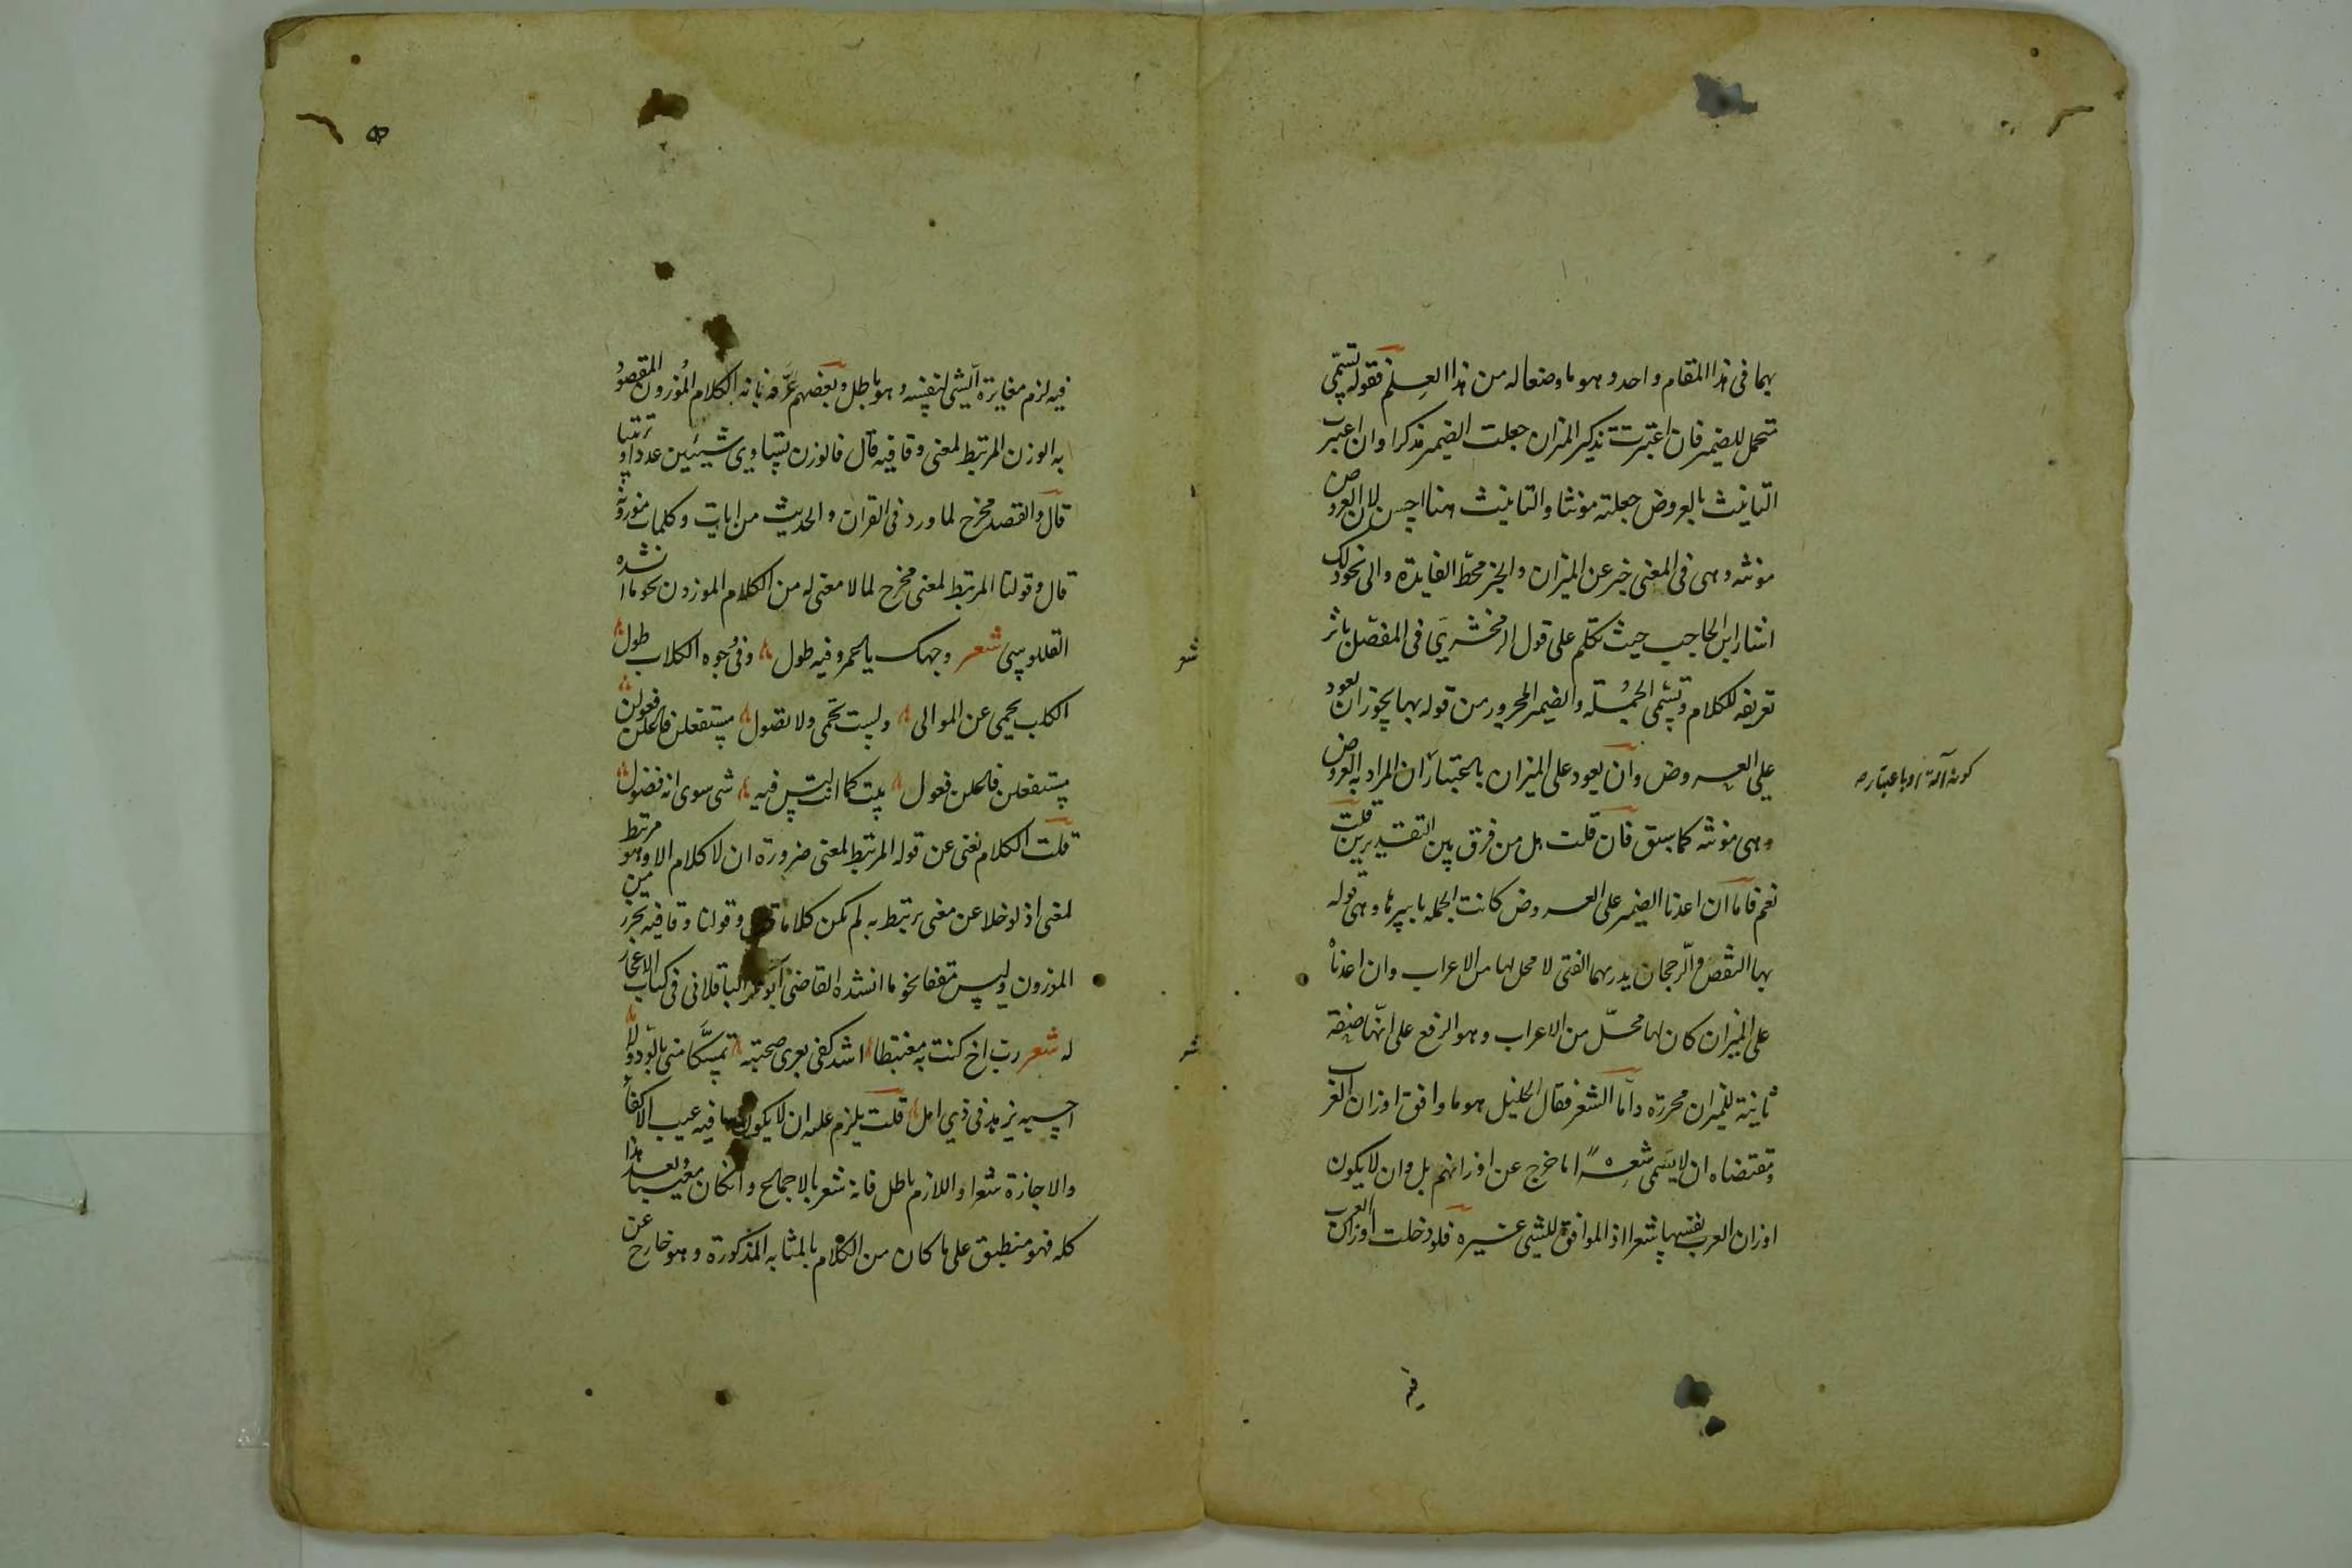 بهما فى هذا المقام واحد وهو ما وضعا له من هذا العلم فقوله تسمى
متحمل للضمير فان اعتبرت تذكير الميزان جعلت الضمير مذكرا وان اعتبرت
التانيث بالعروض جعلته مونثا والتانيث هنا احسن لان العروض
مونثه وهى فى المعنى خبر عن الميزان والخبر محط الفايدة والى نحو ذلك
اشار ابن الحاجب حيث تكلم على قول الزمخشري فى المفصل باثر
تعريفه للكلام وتسمى الجملة والضمير المجرور من قوله بها يجوز ان يعود
على العروض وان يعود على الميزان باعتبار ان المراد به العروض
كونه آلة او باعتباره
وهى مونثه كما سبق فان قلت هل من فرق بين التقديرين قلت
نعم فاما ان اعدنا الضمير على العروض كانت الجمله باسرها وهى قوله
بها النقص والرجحان يدريهما الفتى لا محل لها من الاعراب وان اعدناه
على الميزان كان لها محل من الاعراب وهو الرفع على انها صفة
ثانية للميزان محررة واما الشعر فقال الخليل هو ما وافق اوزان العرب
ومقتضاه ان لا يسمى شعرا ما خرج عن اوزانهم بل وان لا يكون
اوزان العرب نفسها شعرا اذ الموافق للشىء غيره فلو دخلت اوزان العرب
فيه
فيه لزم مغايرة الشى لنفسه وهو باطل وبعضهم عرفه بانه الكلام الموزون المقصود
به الوزن المرتبط لمعنى وقافيه قال فالوزن تساوى شيئين عددا وترتيبا
قال والقصد مخرج لما ورد فى القران والحديث من ايات وكلمات موزونة
قال وقولنا المرتبط لمعنى مخرج لما لا معنى له من الكلام الموزون نحو ما انشده
القللوسى شعر وجهك يا عمرو فيه طول وفى وجوه الكلاب طول
شعر
الكلب يحمى عن الموالى ولست تحمى ولا تصول مستفعلن فاعلن فعولن
مستفعلن فاعلن فعول بيت كما انت ليس فيه شى سوى انه فضول
قلت الكلام يغنى عن قوله المرتبط لمعنى ضرورة ان لا كلام الا وهو مرتبط
لمعنى اذ لو خلا عن معنى يرتبط به لم يكن كلاما وقولنا وقافيه تحرز من
الموزون وليس مقفا نحو ما انشده القاضى ابو بكر الباقلانى فى كتاب الاعجاز
له شعر رب اخ كنت به مغتبطا اشد كفى بعرى صحبته تمسكا منى بالود ولا
شعر
احسبه يزهد فى ذي امل قلت يلزم عليه ان لا يكون ما فيه عيب الاكفاء
والاجازة شعرا واللازم باطل فانه شعر بالاجماع وان كان معيبا وبعد هذا
كله فهو منطبق على ما كان من الكلام بالمثابه المذكورة وهو خارج عن